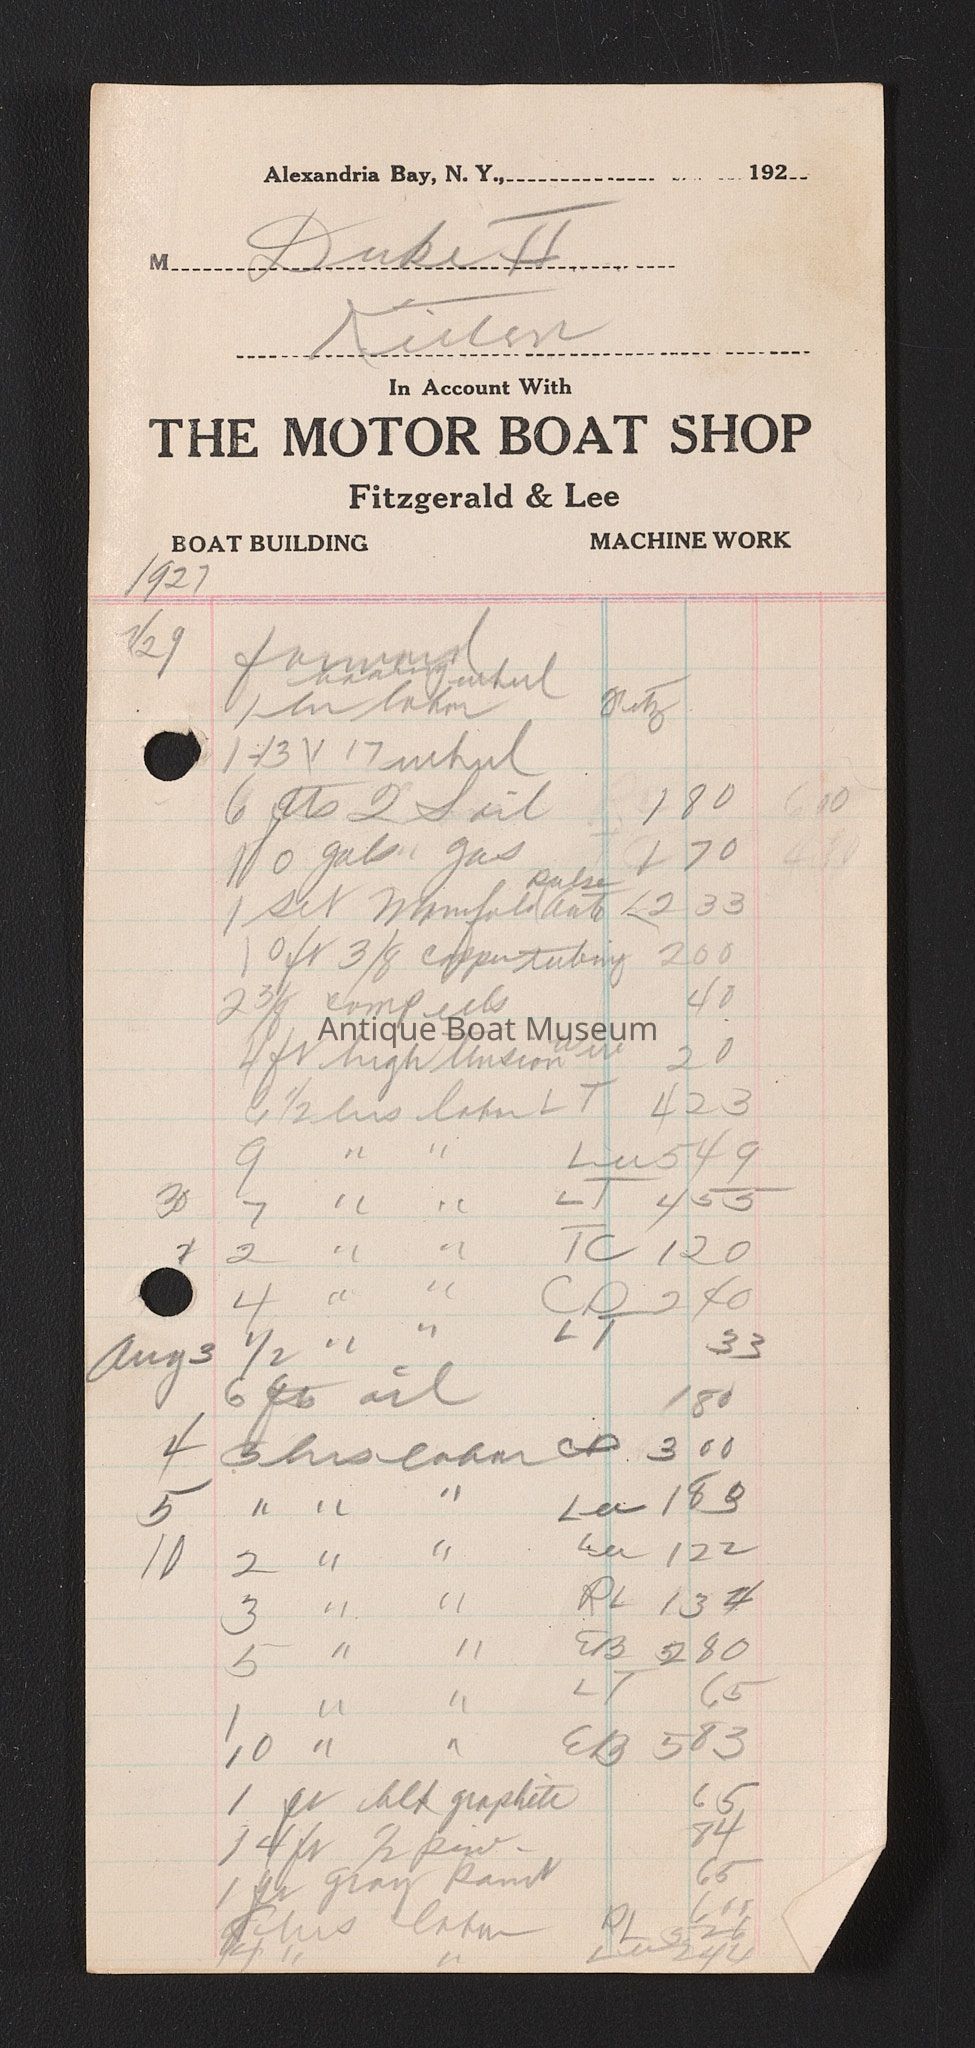 Alexandria Bay, N. Y., 192
M Duke II
In Account With
THE MOTOR BOAT SHOP
Fitzgerald & Lee
BOAT BUILDING MACHINE WORK
1927
7/29 forward
wheel
1 hr labor Fitz
1-13 x 17 wheel
6 qts oil 1 80
10 gals gas 1 70
1 set Manifold 2 33
10 ft 3/8 copper tubing 2 00
2 3/8 comp ells 40
4 ft high tension wire 20
6 1/2 hrs labor LT 4 23
9 " " Lee 5 49
30 7 " " LT 4 55
2 " " TC 1 20
4 " " CD 2 40
Aug 3 1/2 " " LT 33
6 qts oil 1 80
4 3 hrs labor CD 3 00
5 " " " Lee 1 83
10 2 " " Lee 1 22
3 " " RL 1 34
5 " " EB 2 80
1 " " LT 65
10 " " EB 5 83
1 qt blk graphite 65
14 ft 1/2 84
1 qt gray paint 65
hrs labor RL
" " Lee 2 44
Antique Boat Museum